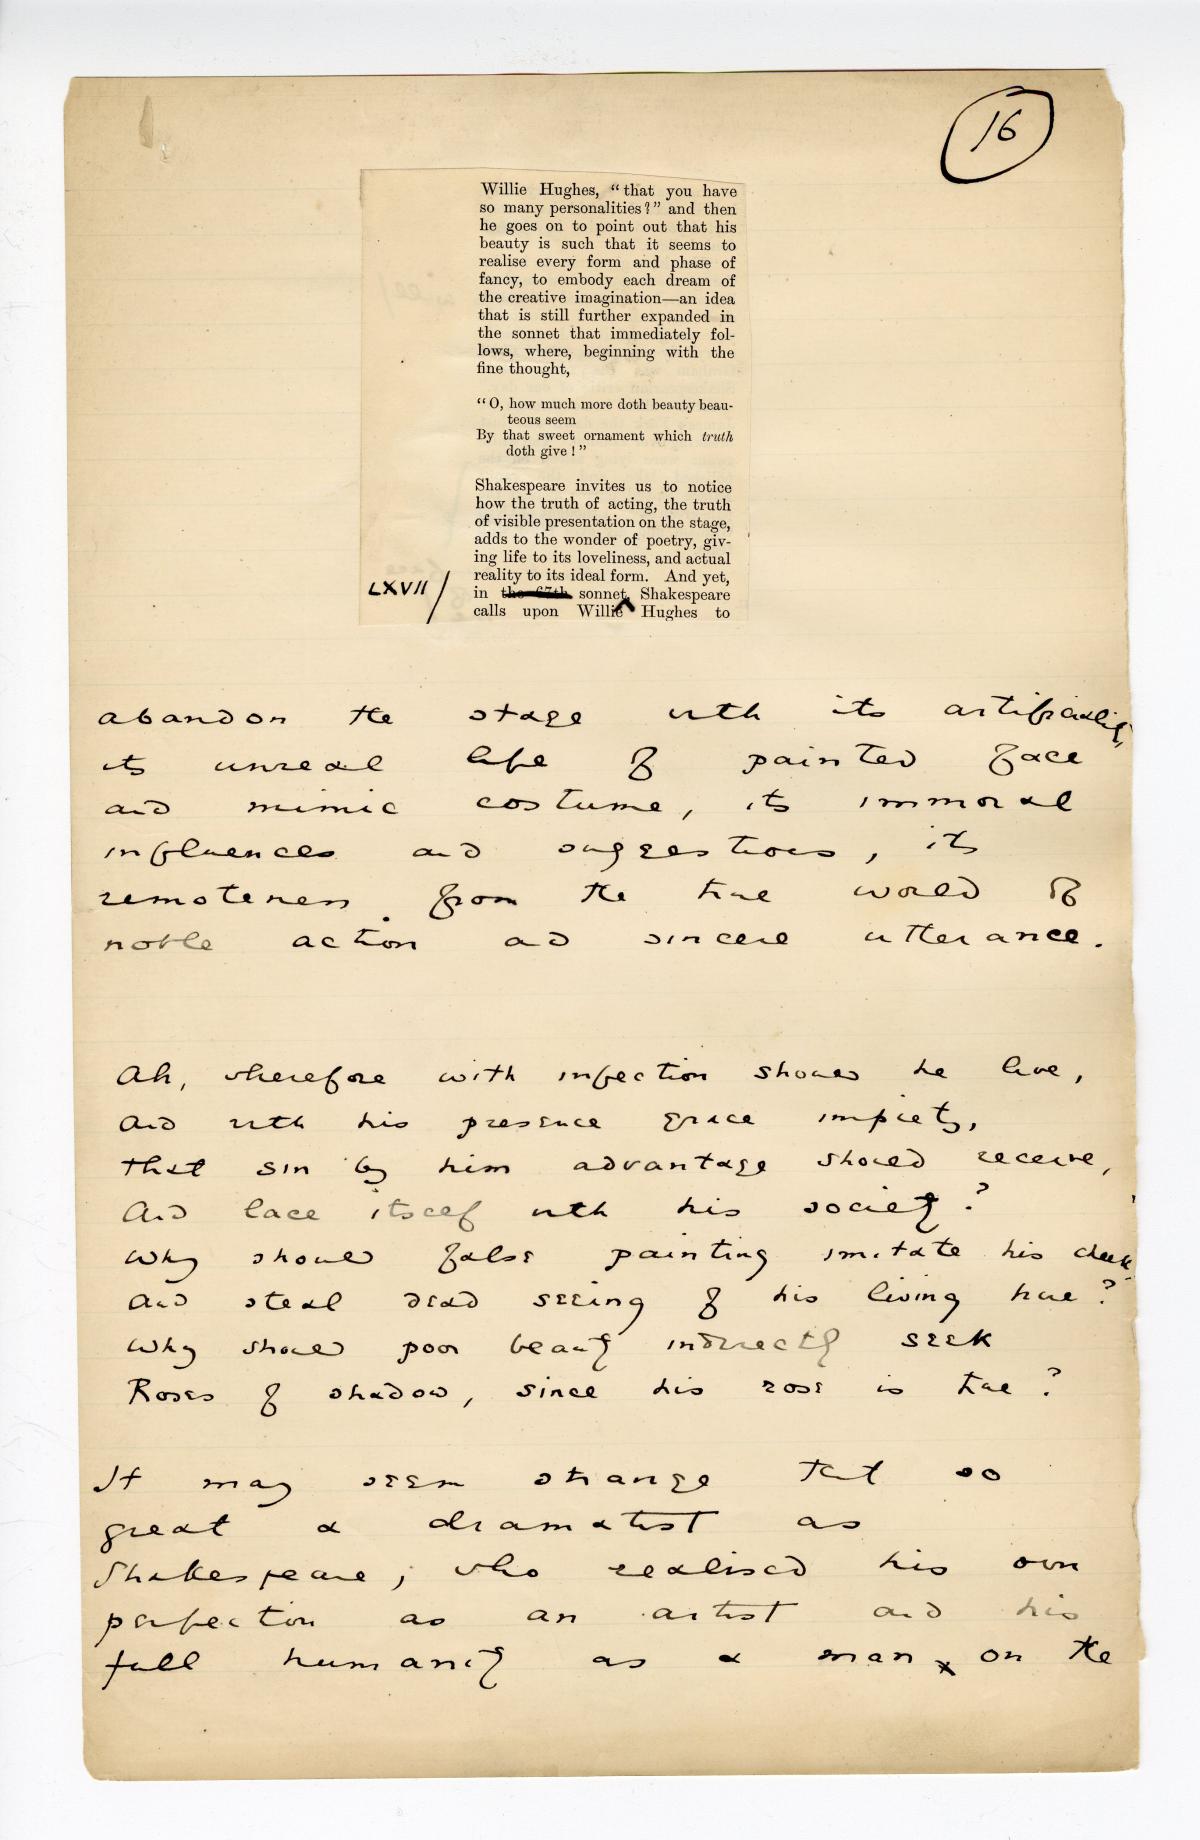 16
Willie Hughes, “that you have
so many personalities?” and then
he goes on to point out that his
beauty is such that it seems to
realise every form and phase of
fancy, to embody each dream of
the creative imagination—an idea
that is still further expanded in
the sonnet that immediately fol-
lows, where, beginning with the
fine thought,
“O, how much more doth beauty beau-
teous seem
By that sweet ornament which truth
doth give!”
Shakespeare invites us to notice
how the truth of acting, the truth
of visible presentation on the stage,
adds to the wonder of poetry, giv-
ing life to its loveliness, and actual
reality to its ideal form. And yet,
LXVII/ in the 67th sonnet, Shakespeare
calls upon Willie Hughes to
abandon the stage with its artificiality,
its unreal life of painted face
and mimic costume, its immoral
influences and suggestions, its
remoteness from the true world of
noble action and sincere utterance.
Ah, wherefore with infection should he live,
And with his presence grace impiety,
That sin by him advantage should receive,
And lace itself with his society?
Why should false painting imitate his cheek,
And steal dead seeing of his living hue?
Why should poor beauty indirectly seek
Roses of shadow, since his rose is true?
It may seem strange that so
great a dramatist as
Shakespeare, who realised his own
perfection as an artist and his
full humanity as a man on the